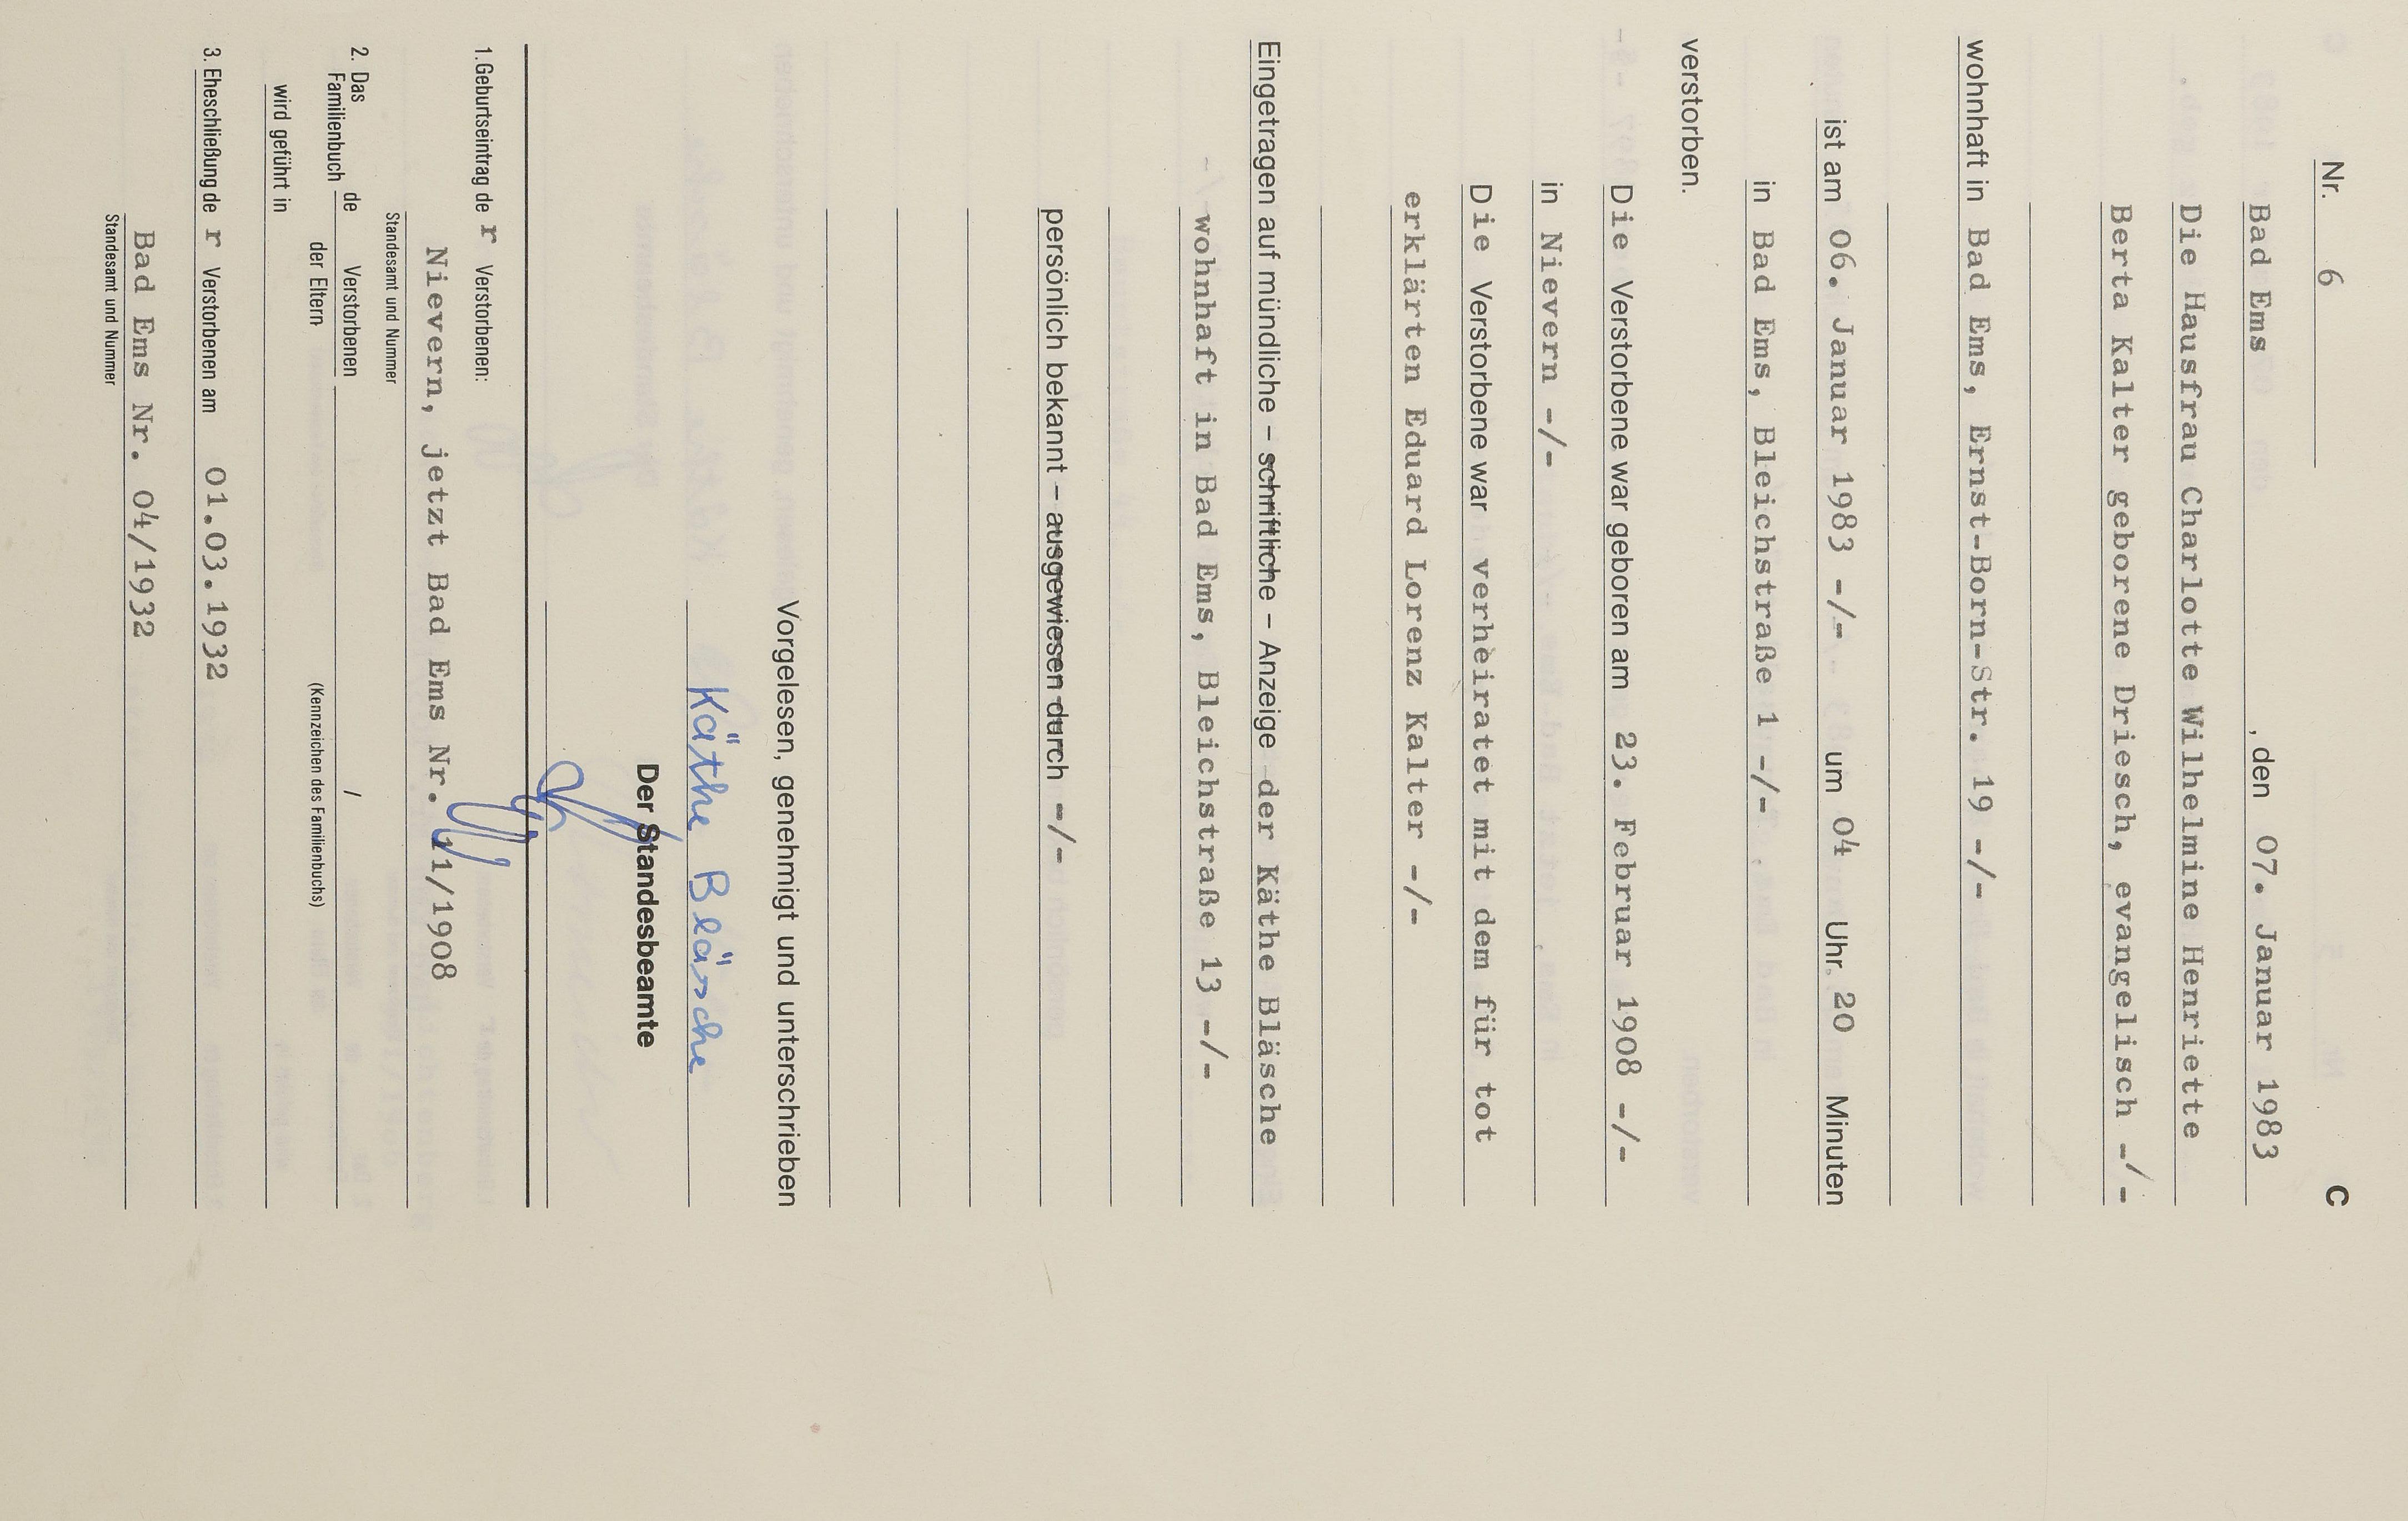 Nr. 6 C
Bad Ems , den 07. Januar 1983
Die Hausfrau Charlotte Wilhelmine Henriette
Berta Kalter geborene Driesch, evangelisch -/-
wohnhaft in Bad Ems, Ernst-Born-Str. 19 -/-
ist am 06. Januar 1983 -/- um 04 Uhr 20 Minuten
in Bad Ems, Bleichstraße 1 -/-
verstorben.
Die Verstorbene war geboren am 23. Februar 1908 -/-
in Nievern -/-
Die Verstorbene war verheiratet mit dem für tot
erklärten Eduard Lorenz Kalter -/-
Eingetragen auf mündliche – schriftliche – Anzeige der Käthe Bläsche
-/- wohnhaft in Bad Ems, Bleichstraße 13 -/-
persönlich bekannt – ausgewiesen durch -/-
Vorgelesen, genehmigt und unterschrieben
Käthe Bläsche
Der Standesbeamte
1. Geburtseintrag de r Verstorbenen:
Nievern, jetzt Bad Ems Nr. 11/1908
Standesamt und Nummer
2. Das Familienbuch de Verstorbenen /
der Eltern (Kennzeichen des Familienbuchs)
wird geführt in
3. Eheschließung de r Verstorbenen am 01.03.1932
Bad Ems Nr. 04/1932
Standesamt und Nummer